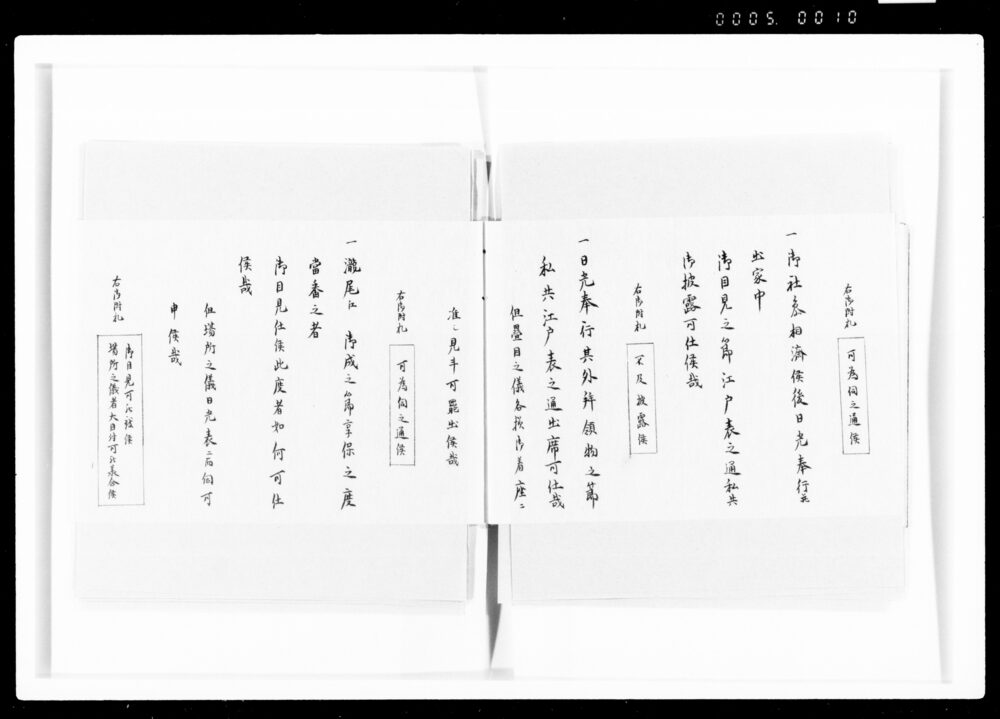 0005. 0010
右御附札
可為伺之通候
一御社参相濟候後日光奉行并
出家中
御目見之節江戸表之通私共
御披露可仕候哉
右御附札
不及披露候
一日光奉行其外拝領物之節
私共江戸表之通出席可仕哉
但疊目之儀各様御着座ニ
准シ見斗可罷出候哉
右御附札
可為伺之通候
一瀧尾江 御成之節享保之度
當番之者
御目見仕候此度者如何可仕
候哉
但場所之儀日光表ニ而伺可
申候哉
右御附札
御目見可被致候
場所之儀者大目付可被承合候